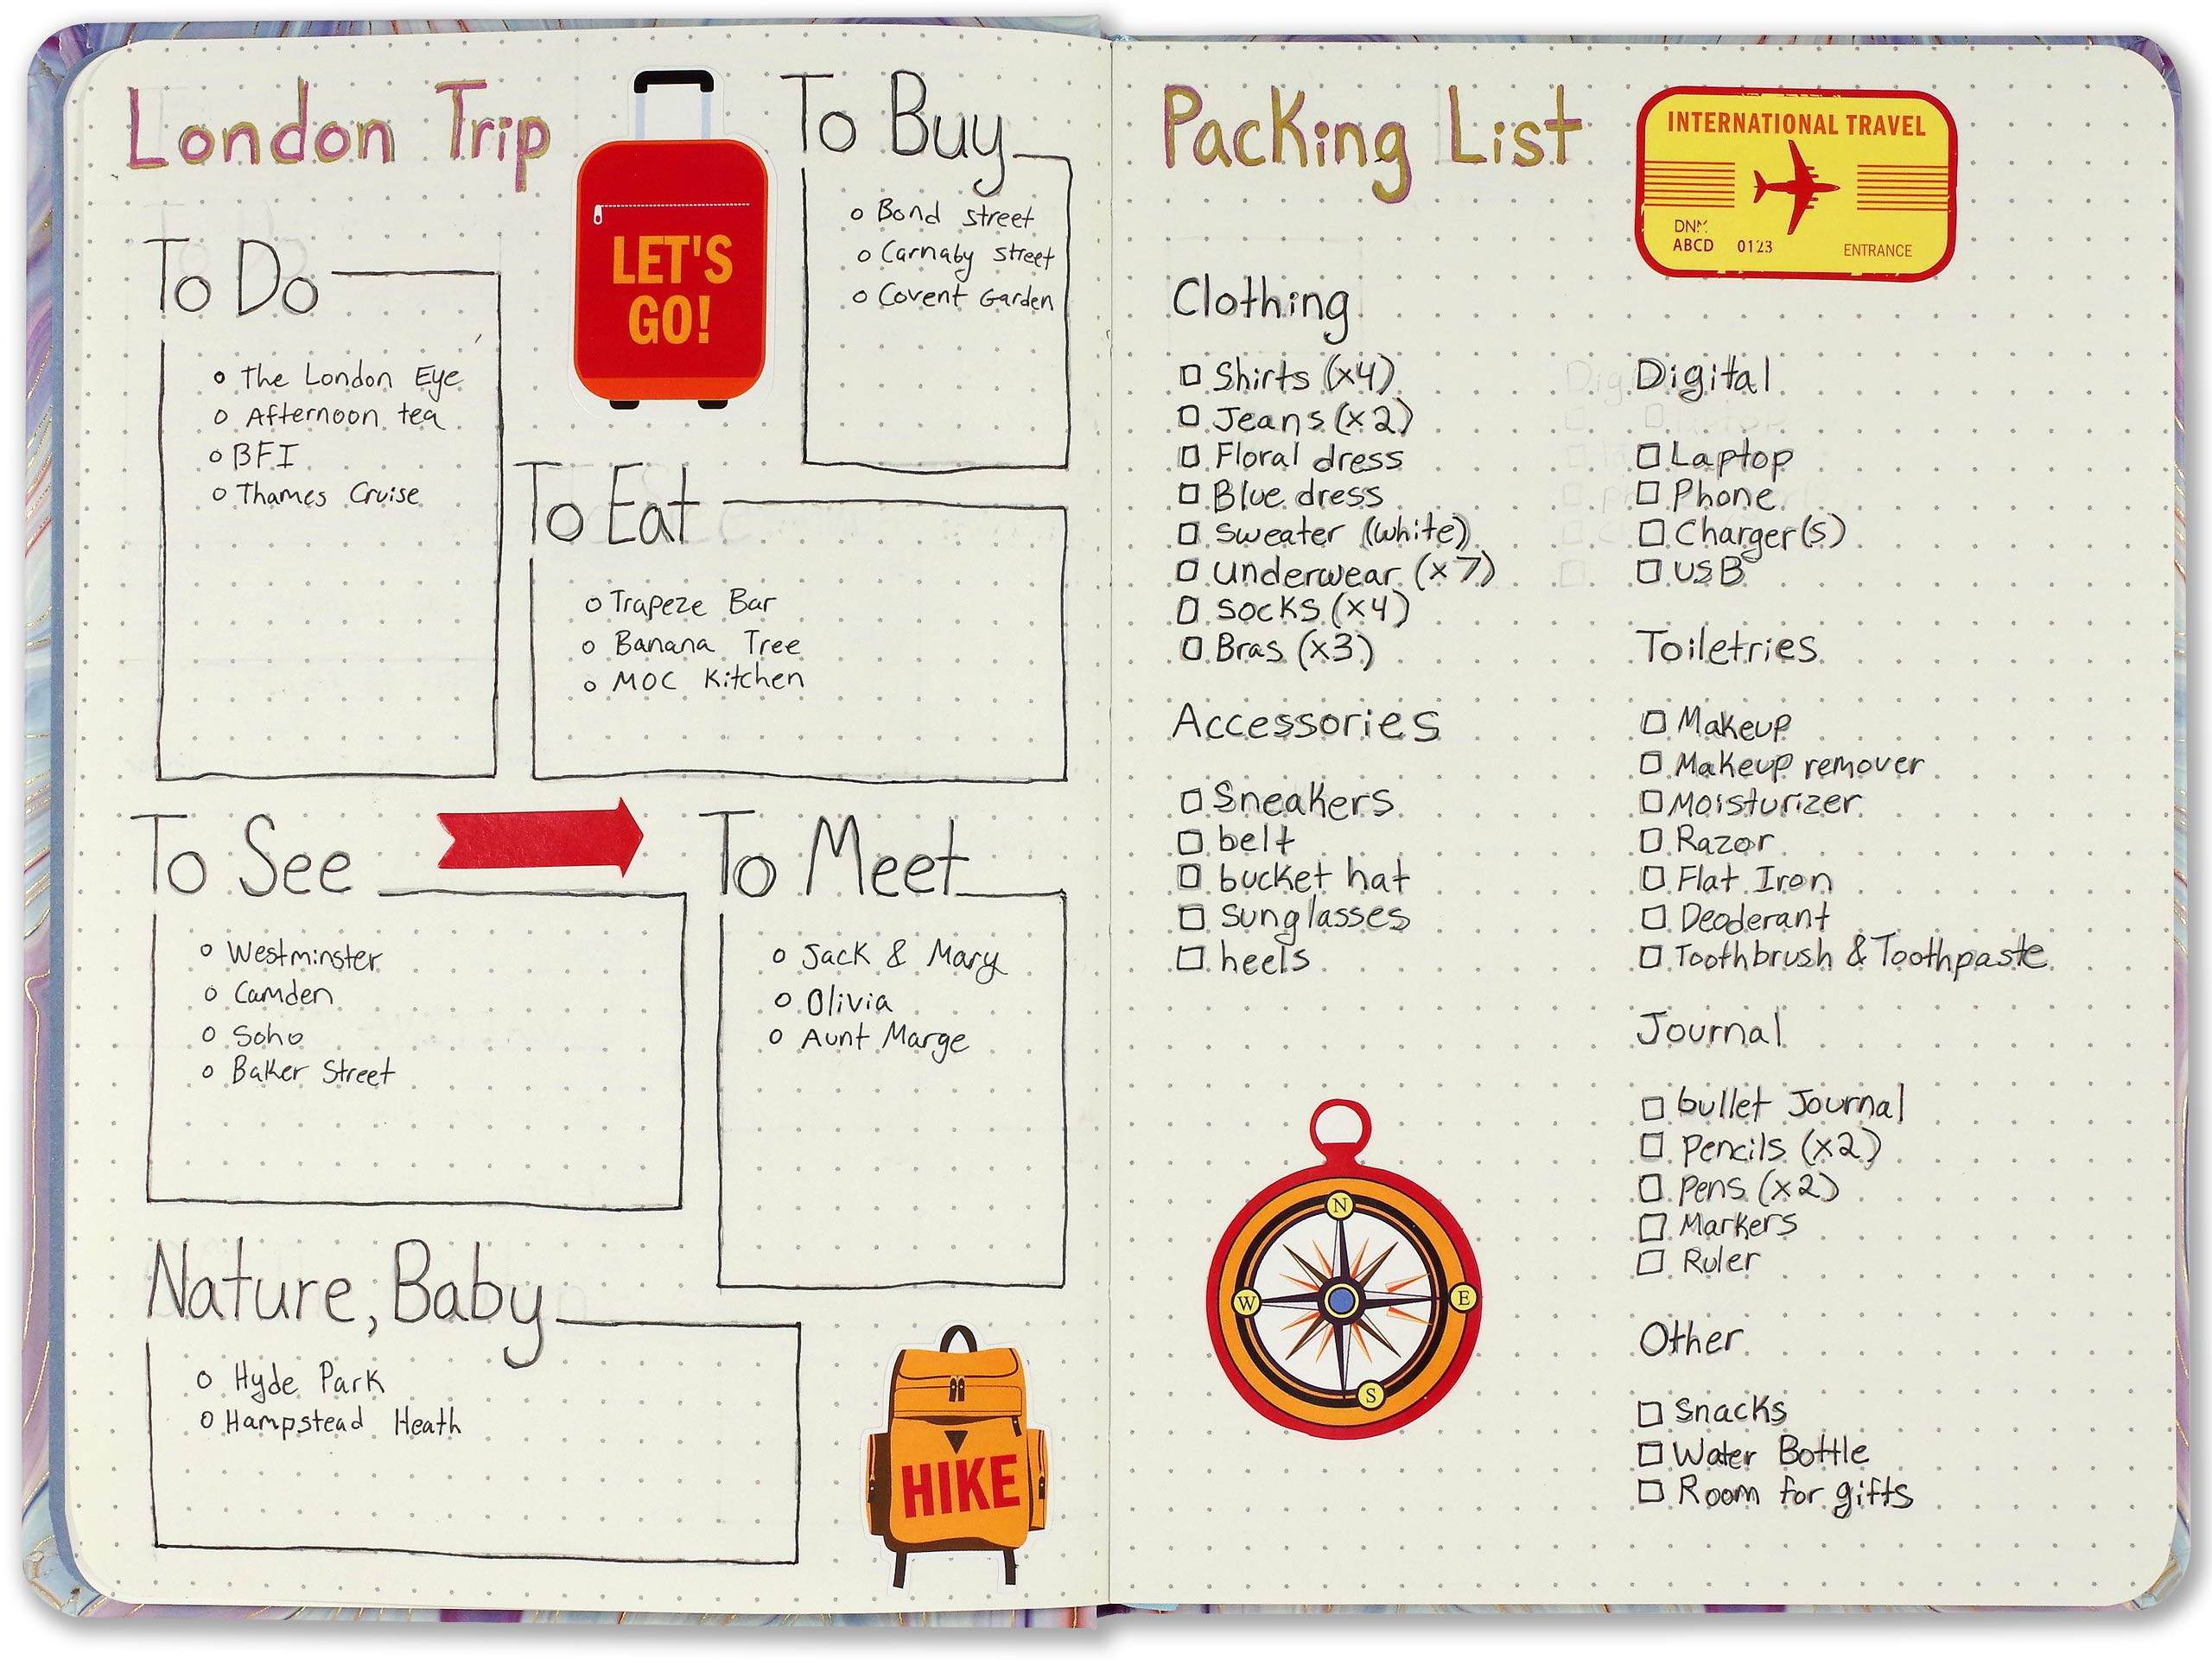 London Trip
LET'S
GO!
To Buy
Bond street
Carnaby street
Covent Garden
To Do
The London Eye
Afternoon tea
BFI
Thames Cruise
To Eat
Trapeze Bar
Banana Tree
MOC Kitchen
To See
Westminster
Camden
Soho
Baker Street
To Meet
Jack & Mary
Olivia
Aunt Marge
Nature, Baby
Hyde Park
Hampstead Heath
HIKE
Packing List
INTERNATIONAL TRAVEL
ABCD 0123
ENTRANCE
Clothing
Shirts (x4)
Jeans (x2)
Floral dress
Blue dress
Sweater (white)
underwear (x7)
socks (x4)
Bras (x3)
Accessories
Sneakers
belt
bucket hat
sunglasses
heels
N
W
E
S
Digital
Laptop
Phone
Charger(s)
USB
Toiletries
Makeup
Makeup remover
Moisturizer
Razor
Flat Iron
Deoderant
Toothbrush & Toothpaste
Journal
bullet Journal
Pencils (x2)
Pens (x2)
Markers
Ruler
Other
Snacks
Water Bottle
Room for gifts